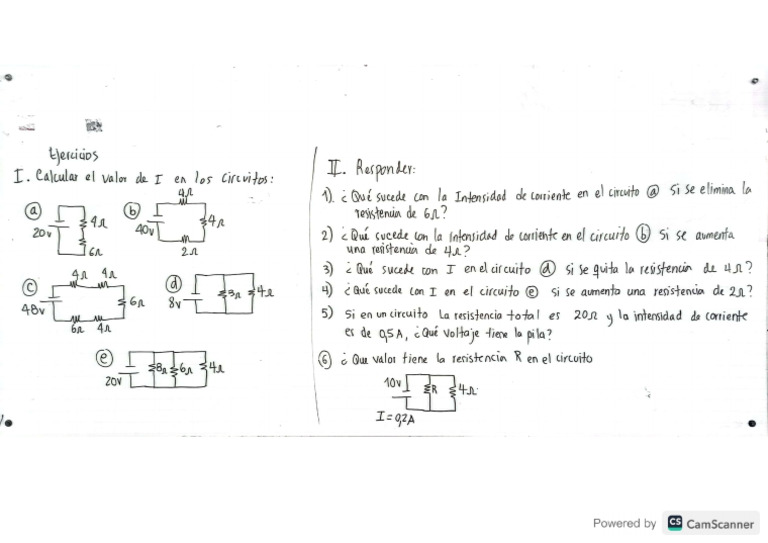 Ejercicios
I. Calcular el valor de I en los circuitos:
a
20v
4Ω
6Ω
b
40v
4Ω
4Ω
2Ω
c
48v
4Ω 4Ω
6Ω
6Ω 4Ω
d
8v
3Ω
4Ω
e
20v
8Ω
6Ω
4Ω
II. Responder:
1). ¿Qué sucede con la Intensidad de corriente en el circuito a si se elimina la
resistencia de 6Ω?
2) ¿Qué sucede con la intensidad de corriente en el circuito b si se aumenta
una resistencia de 4Ω?
3) ¿Qué sucede con I en el circuito d si se quita la resistencia de 4Ω?
4) ¿Qué sucede con I en el circuito e si se aumenta una resistencia de 2Ω?
5) Si en un circuito la resistencia total es 20Ω y la intensidad de corriente
es de 0,5A, ¿Qué voltaje tiene la pila?
6 ¿Que valor tiene la resistencia R en el circuito
10v
R
4Ω
I = 0,2A
Powered by CS CamScanner